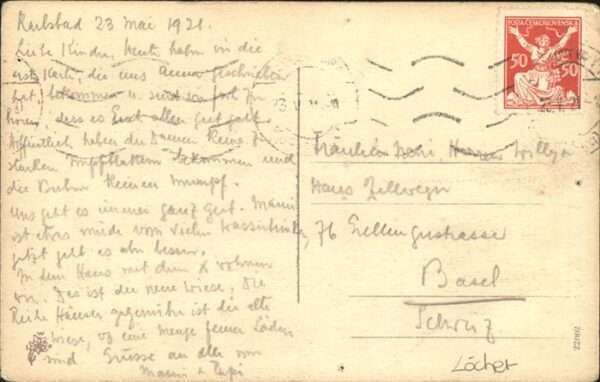 Karlsbad 23 Mai 1921.
Liebe Kinder, Heute haben wir die
erste Karte, die uns Anna geschrieben
hat, bekommen u. sind so froh zu
hören, dass es Euch allen gut geht.
Hoffentlich haben die Damen keine zu
starken bekommen und
die Buben keinen
Uns geht es immer ganz gut. Mami
ist etwas müde vom vielen Wassertrinken,
jetzt geht es aber besser.
In dem Haus mit dem X wohnen
wir. Das ist die neue Wiese, die
Reihe Häuser gegenüber ist die alte
Wiese, wo eine menge feiner Läden
sind. Grüsse an alle von
Mami & Papi
POSTA ČESKOSLOVENSKÁ
50 50
Fräulein Willy &
Hans Zellweger
76 Sellengerstrasse
Basel
Schweiz
Löcher